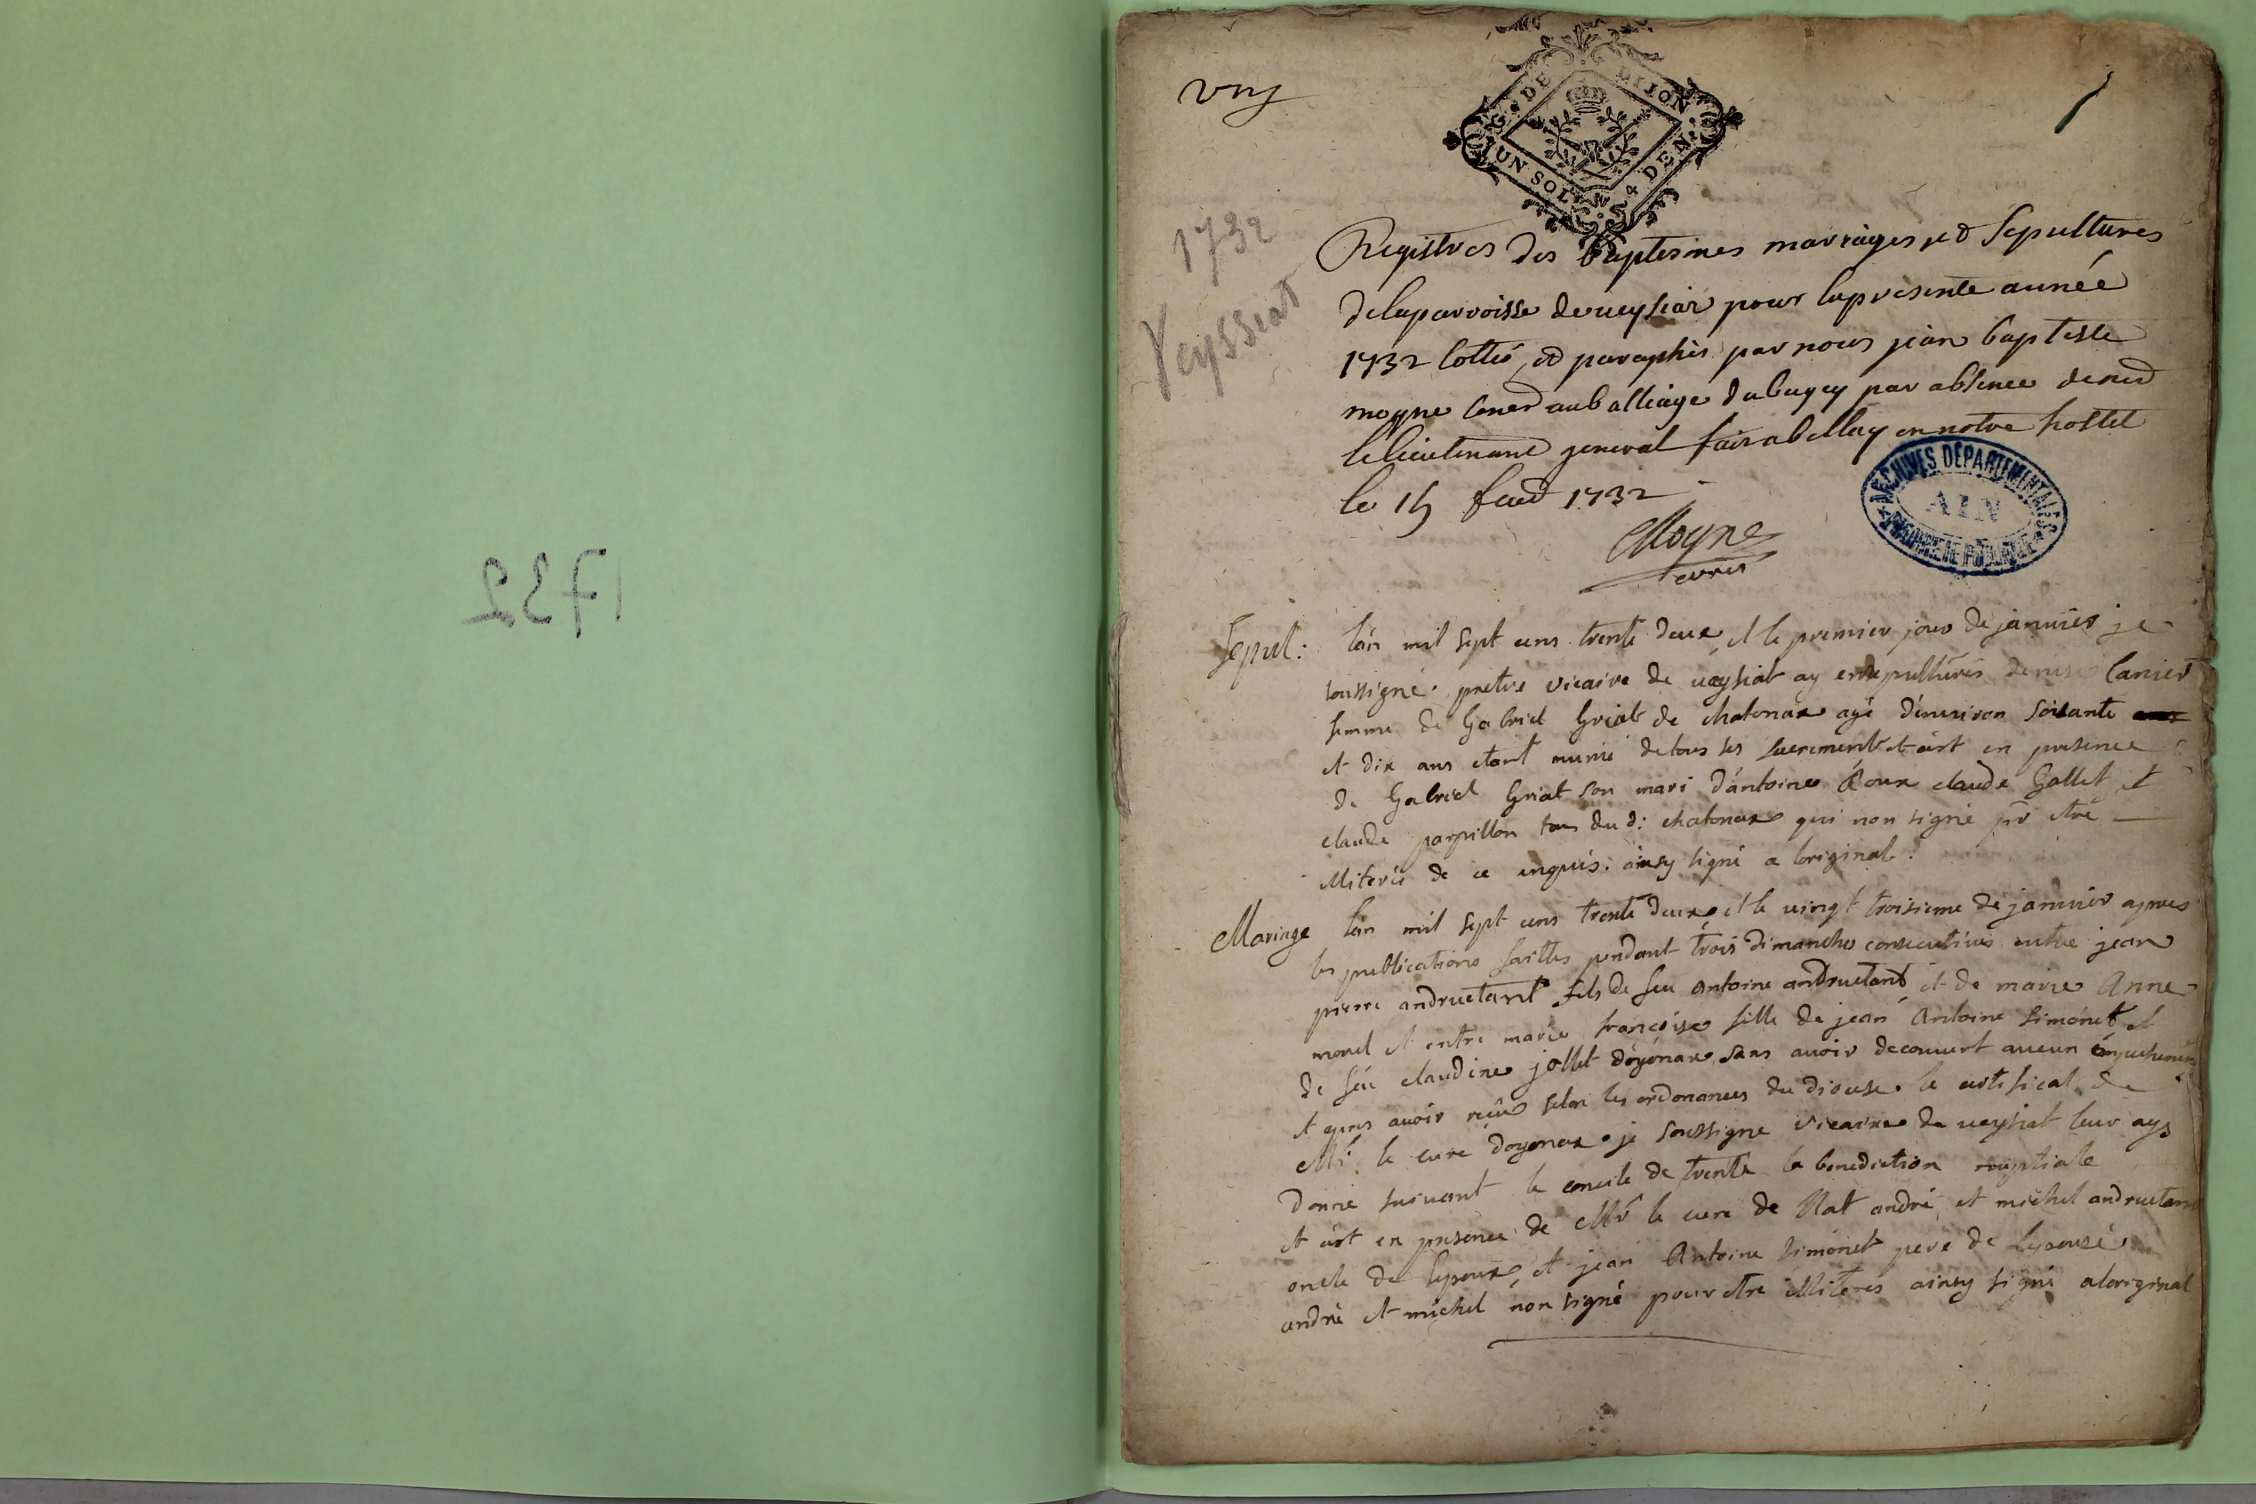 1732
G. DE DIJON
UN SOL 4 DEN.
1732
Veyssiat
Registres des baptesmes mariages et Sepultures
de la parroisse de veysiat pour la presente année
1732 Cottés et paraphés par nous jean baptiste
moyne au balliage du bugey par absence de
le lieutenant general fait a bellay en notre hostel
le 15 1732
Moyne
ARCHIVES DÉPARTEMENTALES
AIN
Sepul: lan mil sept cens trente deux et le premier jour de janvier je
soussigné pretre vicaire de veysiat ay ensepulturés denise Canier
femme de Gabriel Griat de chatonax agé d'environ soixante
et dix ans etant munie de tous ses sacrements et c'est en presence
de Gabriel Griat son mari d'antoine Roux claude Gallet et
claude parpillon tous dud: chatonax qui non signé pr etre
illiterés de ce enquis. ainsy signé a loriginal.
Mariage lan mil sept cens trente deux et le vingt troisieme de janvier apres
les publications faittes pendant trois dimanches consecutives entre jean
pierre andruetant fils de feu antoine andruetant et de marie Anne
morel et entre marie françoise fille de jean Antoine Simonet et
de feu claudine jollet d'oyonax sans avoir decouvert aucun
et apres avoir selon les ordonances du diocese. le certificat de
Mr. le curé doyonax je soussigne vicaire de veysiat leur ays
donne suivant le concile de trente la benediction nuptiale
et c'est en presence de Mr le curé de andré et michel andruetant
oncle de lepoux, et jean Antoine Simonet pere de lepouse
andré et michel non signé pour etre illiterés ainsy signé a loriginal